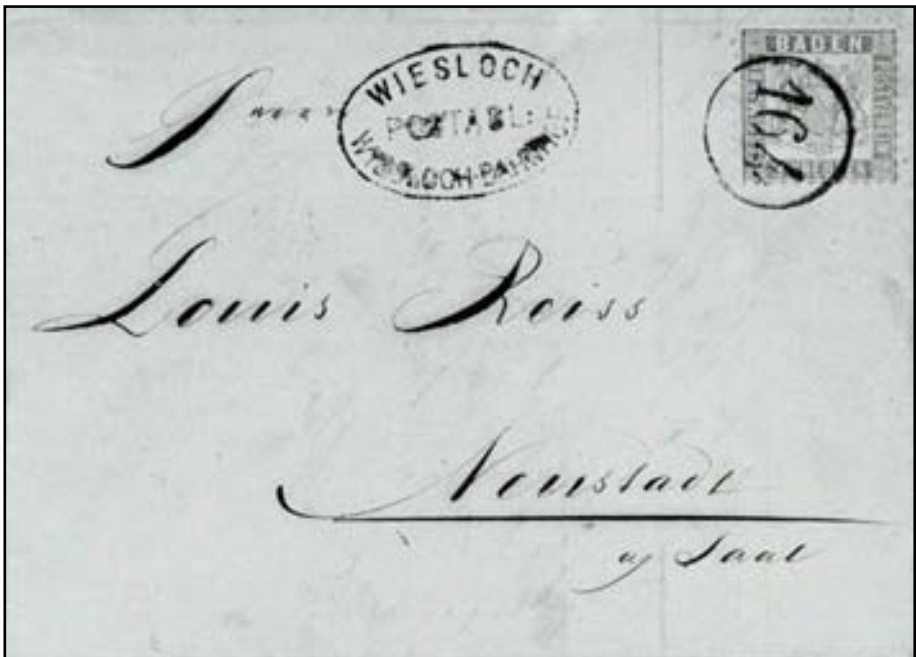 WIESLOCH
POSTABL:
WIESLOCH-BAHNHOF
BADEN
16
Louis Reiss
Neustadt
a/ Saal